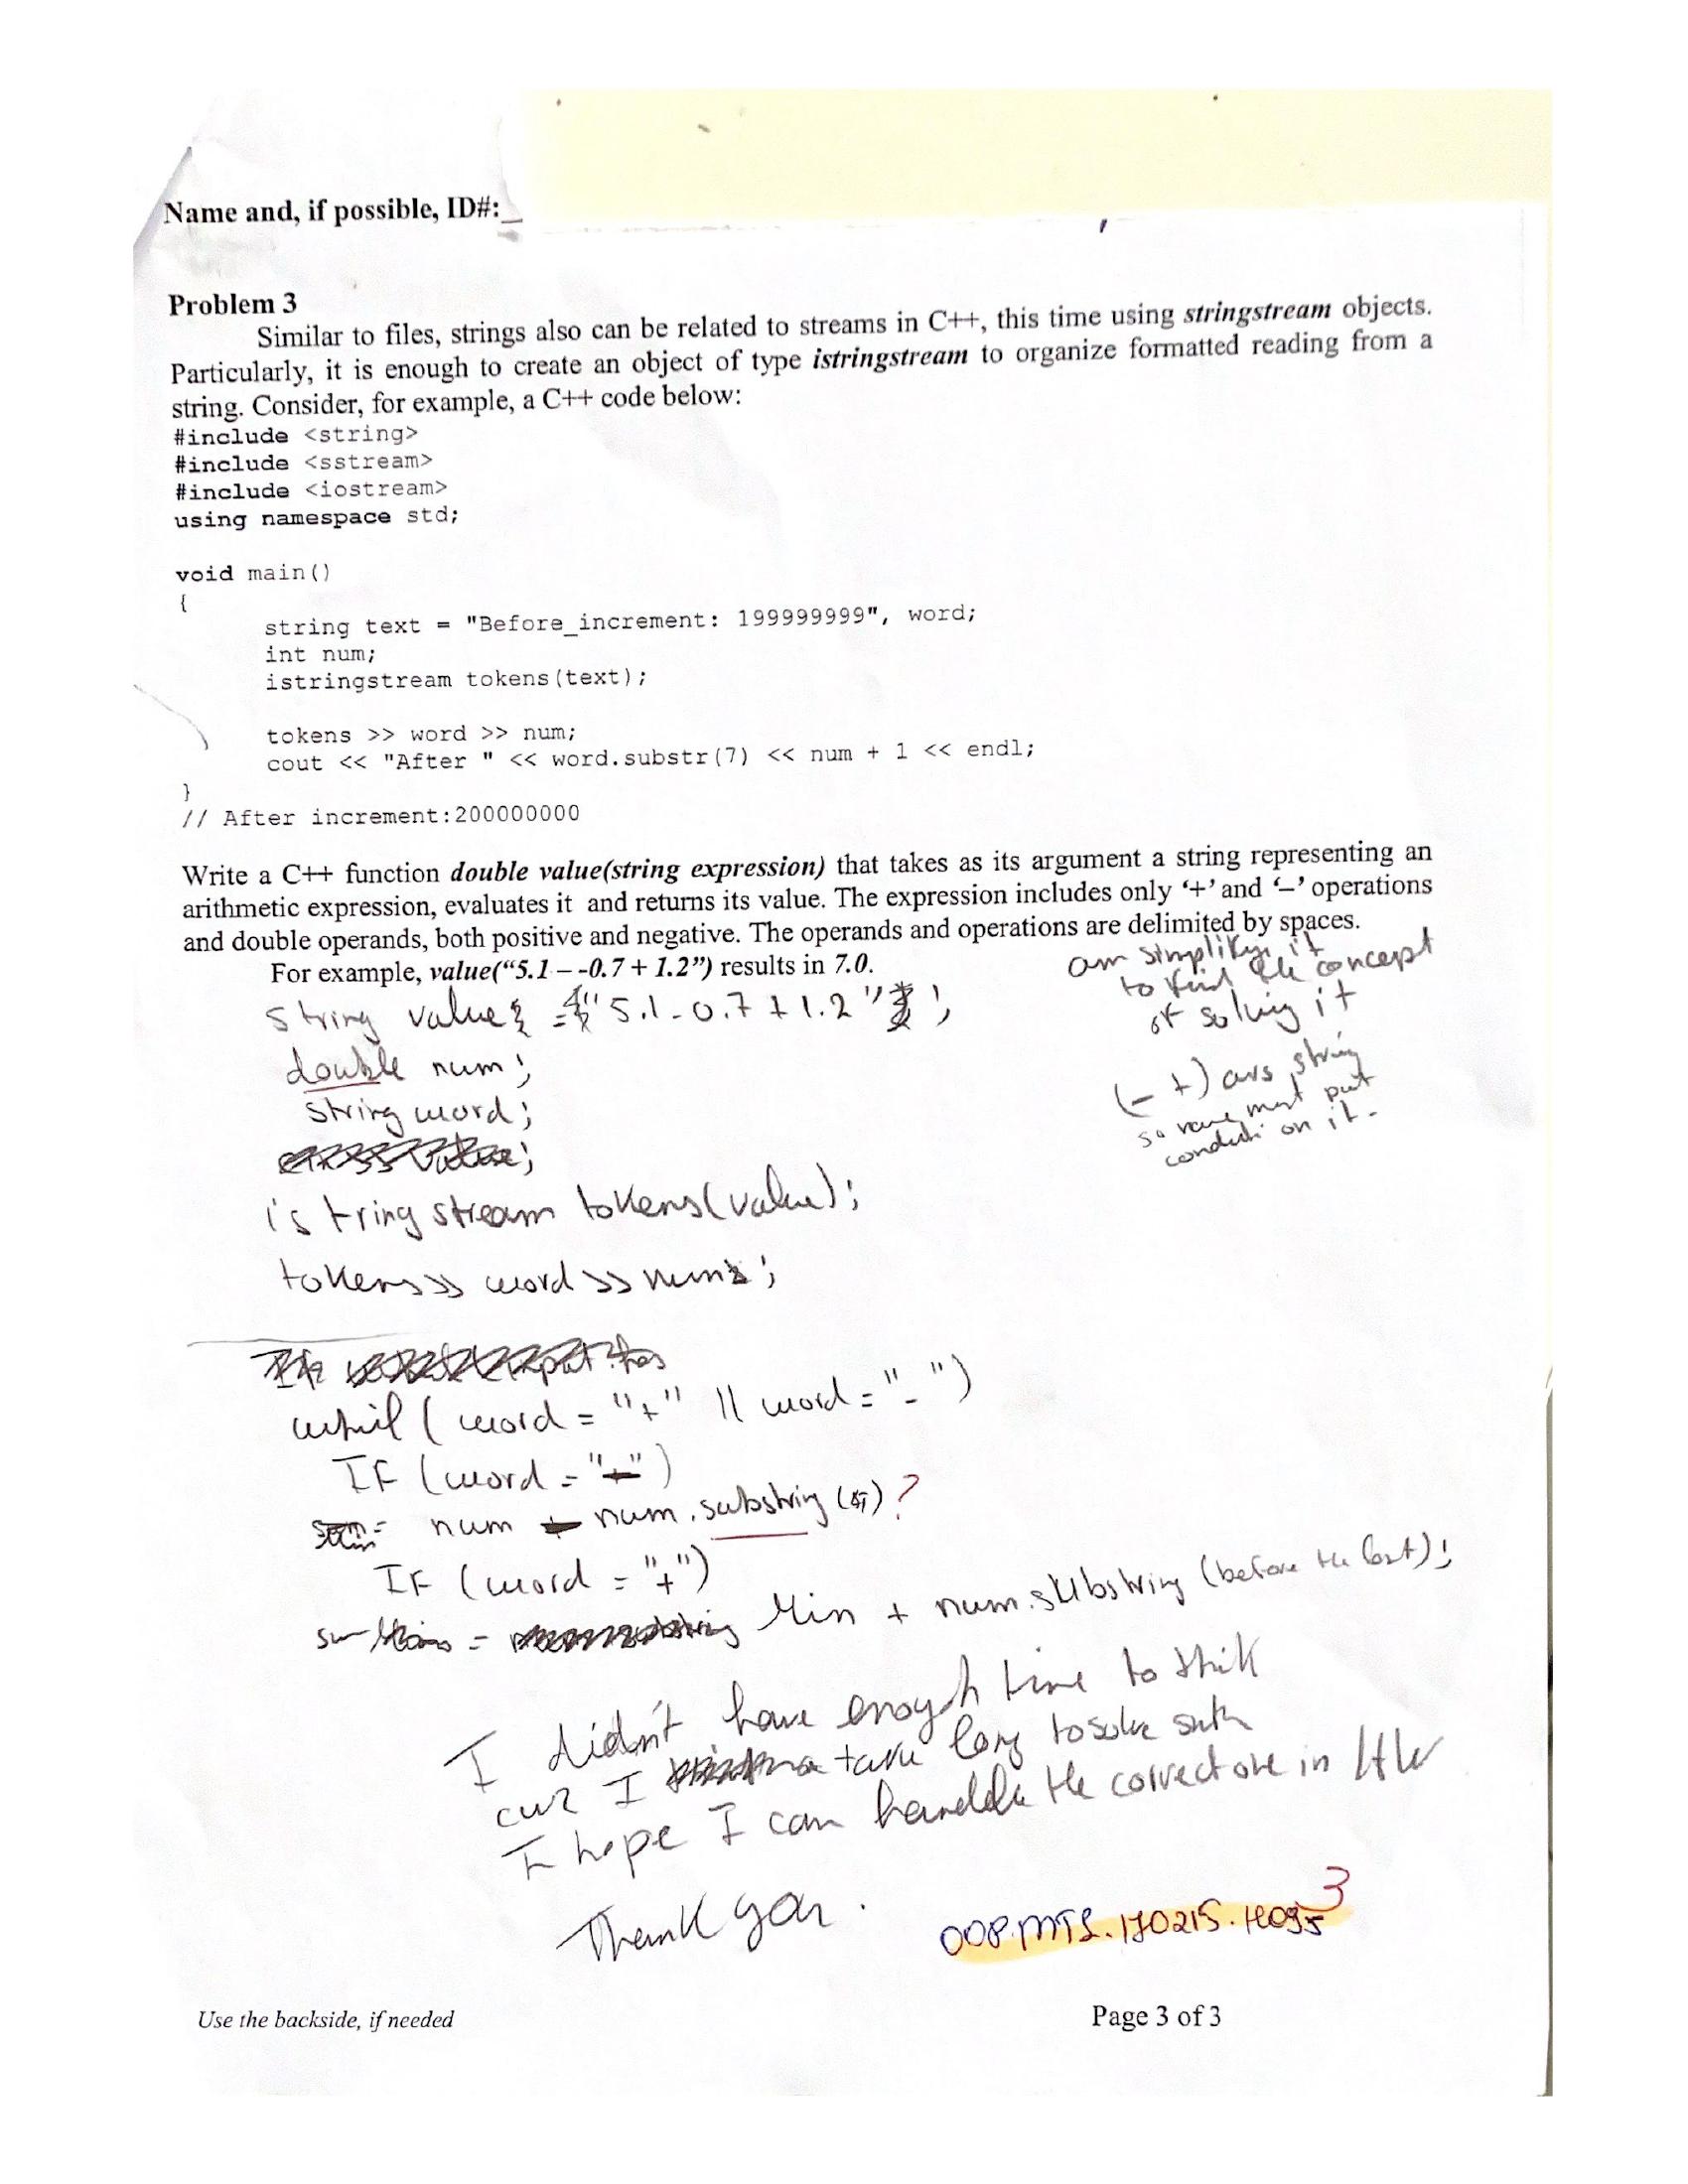 Name and, if possible, ID#:_
Problem 3
Similar to files, strings also can be related to streams in C++, this time using stringstream objects.
Particularly, it is enough to create an object of type istringstream to organize formatted reading from a
string. Consider, for example, a C++ code below:
#include <string>
#include <sstream>
#include <iostream>
using namespace std;
void main()
{
string text = "Before_increment: 199999999", word;
int num;
istringstream tokens(text);
tokens >> word >> num;
cout << "After " << word.substr(7) << num + 1 << endl;
}
// After increment:200000000
Write a C++ function double value(string expression) that takes as its argument a string representing an
arithmetic expression, evaluates it and returns its value. The expression includes only ‘+’ and ‘–’ operations
and double operands, both positive and negative. The operands and operations are delimited by spaces.
For example, value(“5.1 – -0.7 + 1.2”) results in 7.0.
am simplikyi it
to find the concept
of solving it
string value = "5.1 - 0.7 + 1.2" ;
double num;
(- +) ars string
string word;
so must put
on it.
istringstream tokens(value);
tokens >> word >> num;
whil ( word = "+" || word = "-")
IF (word = "-")
num - num.substring ( ) ?
IF (word = "+")
= Min + num.substring (before the last);
I didn't have enough time to thik
cuz I take long to solve
I hope I can handle the correct one in HW
Thank you.
3
OOP.MT1.170215.H095
Use the backside, if needed
Page 3 of 3